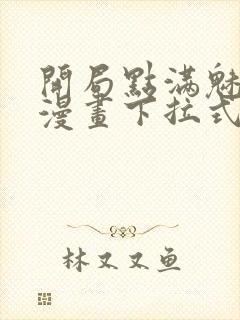 開局點滿魅
漫畫下拉式
林又又鱼